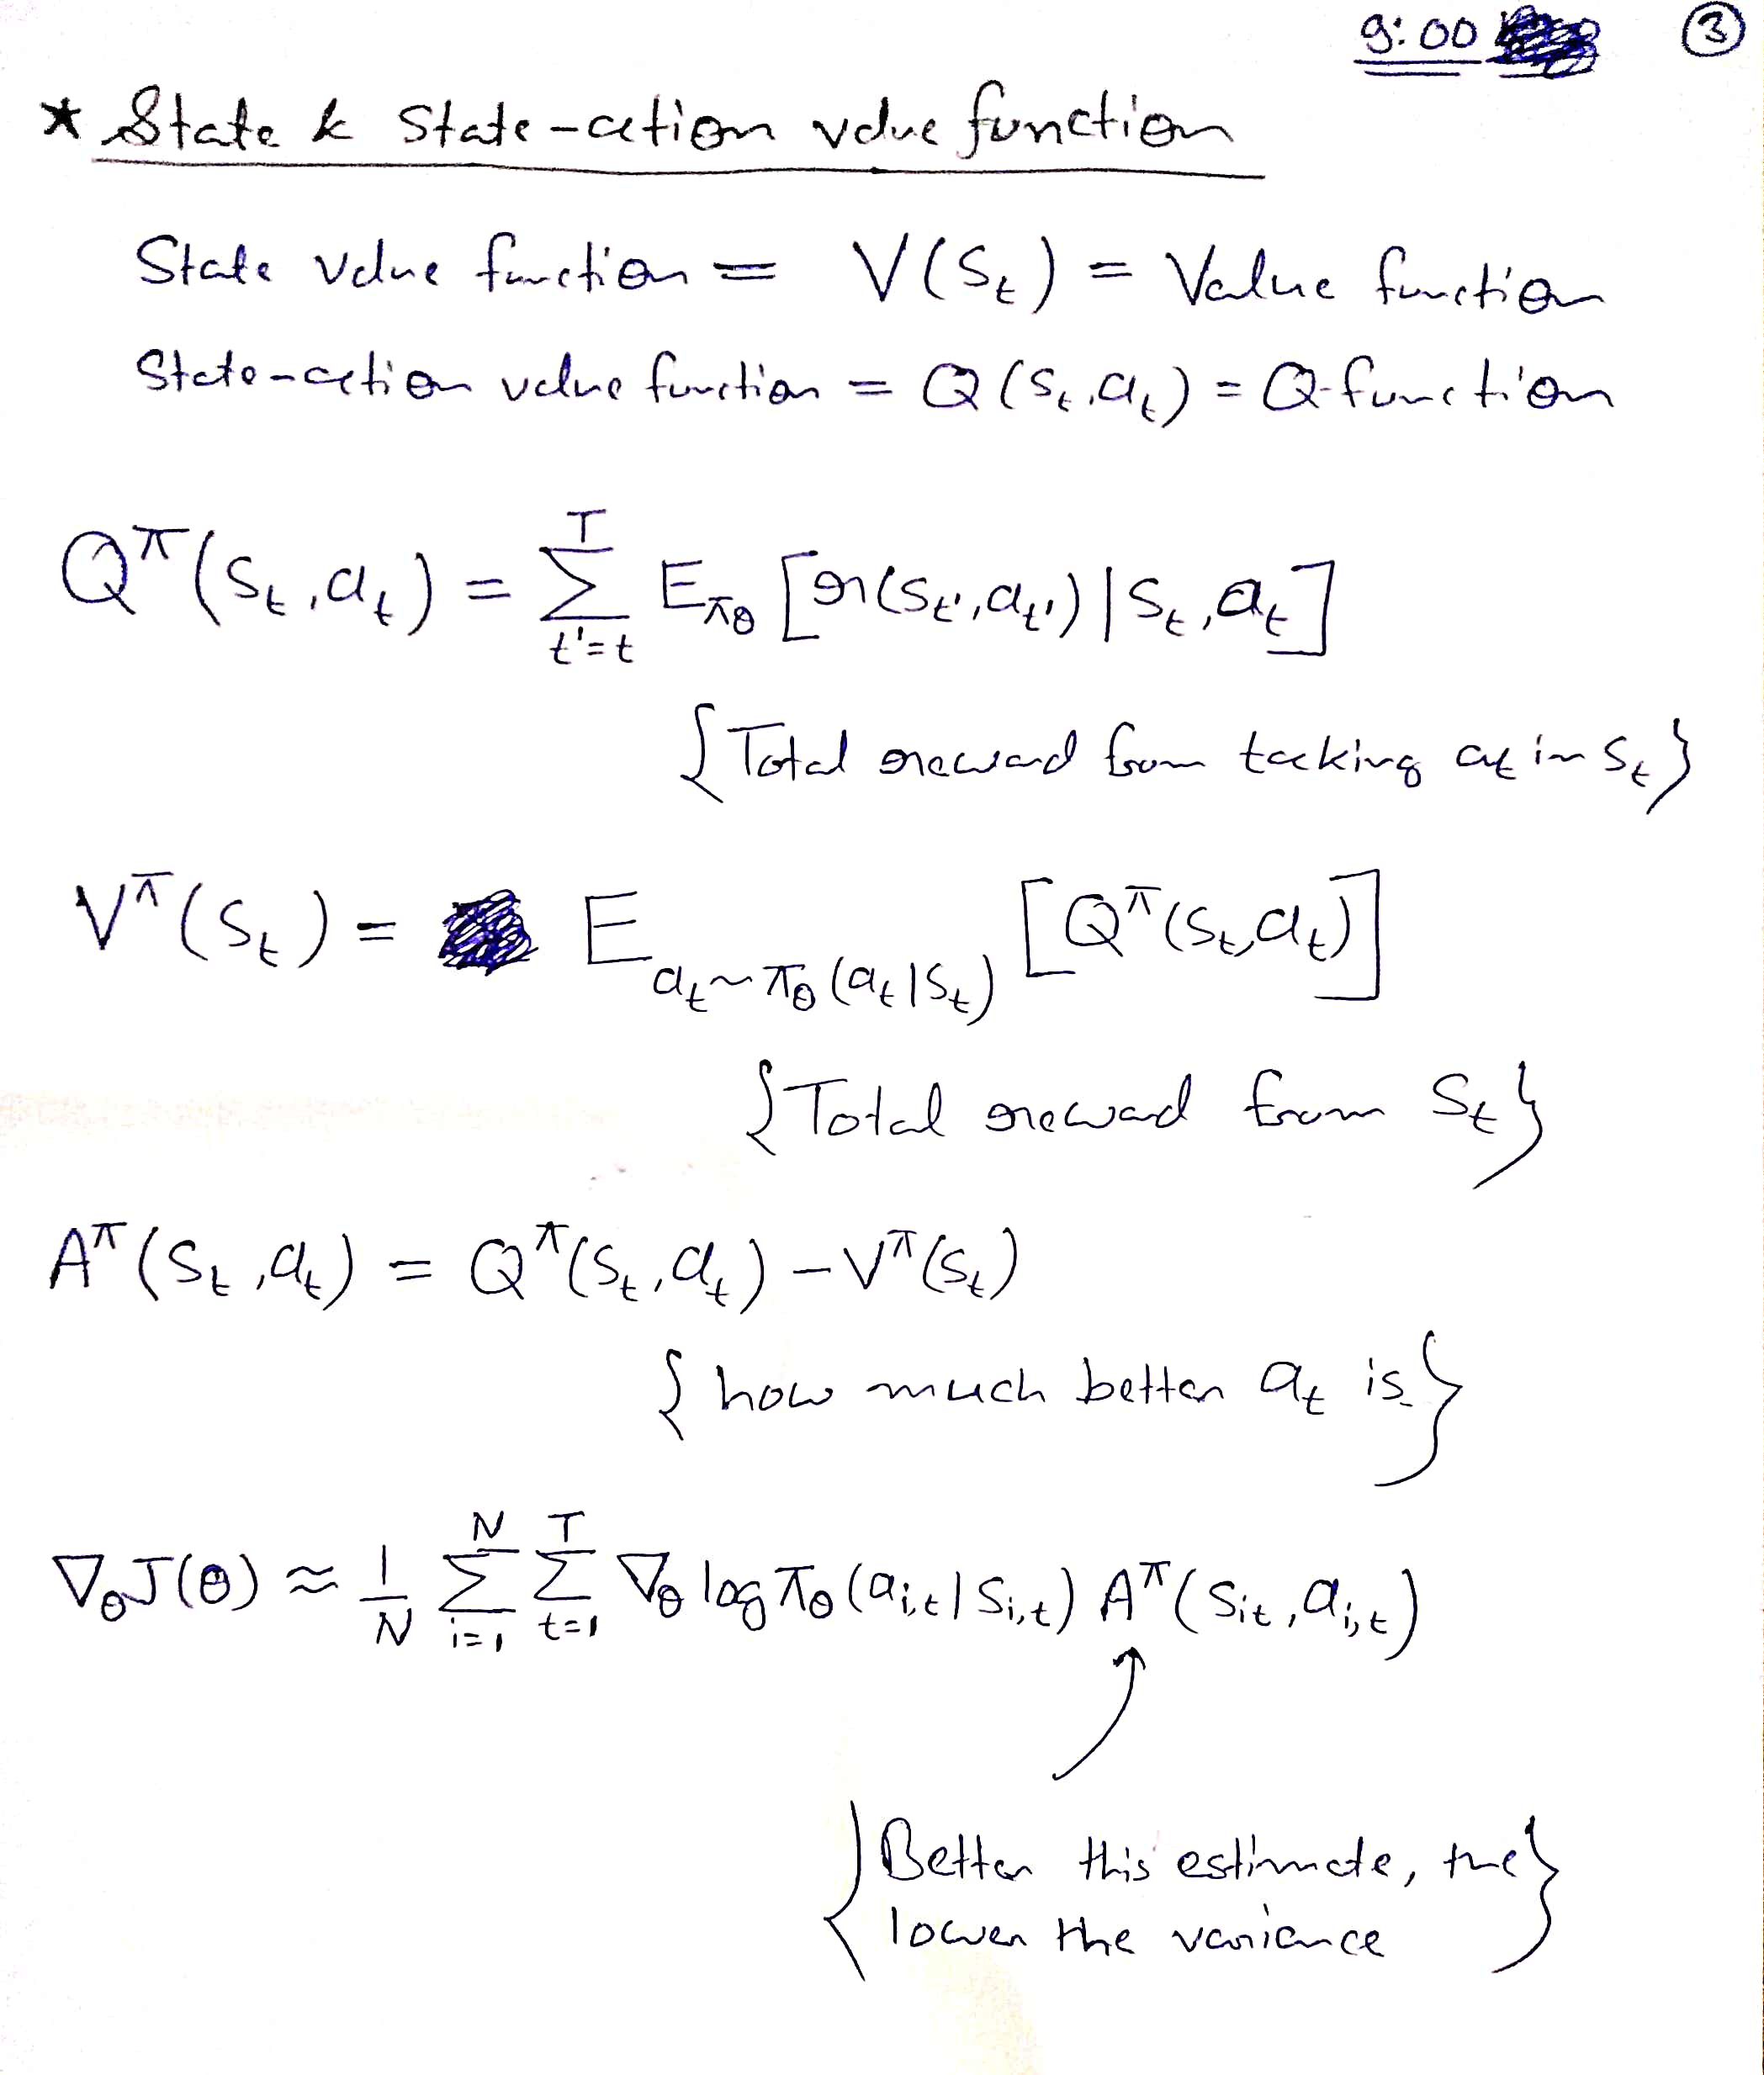 9:00 3
* State & State-action value function
State value function = V(St) = Value function
State-action value function = Q(St,at) = Q-function
Q^π(St,at) = Σ_{t'=t}^{T} E_{πθ} [r(St',at') | St,at]
{Total reward from taking at in St}
V^π(St) = E_{at~πθ(at|St)} [Q^π(St,at)]
{Total reward from St}
A^π(St,at) = Q^π(St,at) - V^π(St)
{how much better at is}
∇θJ(θ) ≈ 1/N Σ_{i=1}^{N} Σ_{t=1}^{T} ∇θ log πθ(ai,t|Si,t) A^π(Sit,ai,t)
{Better this estimate, the
lower the variance}